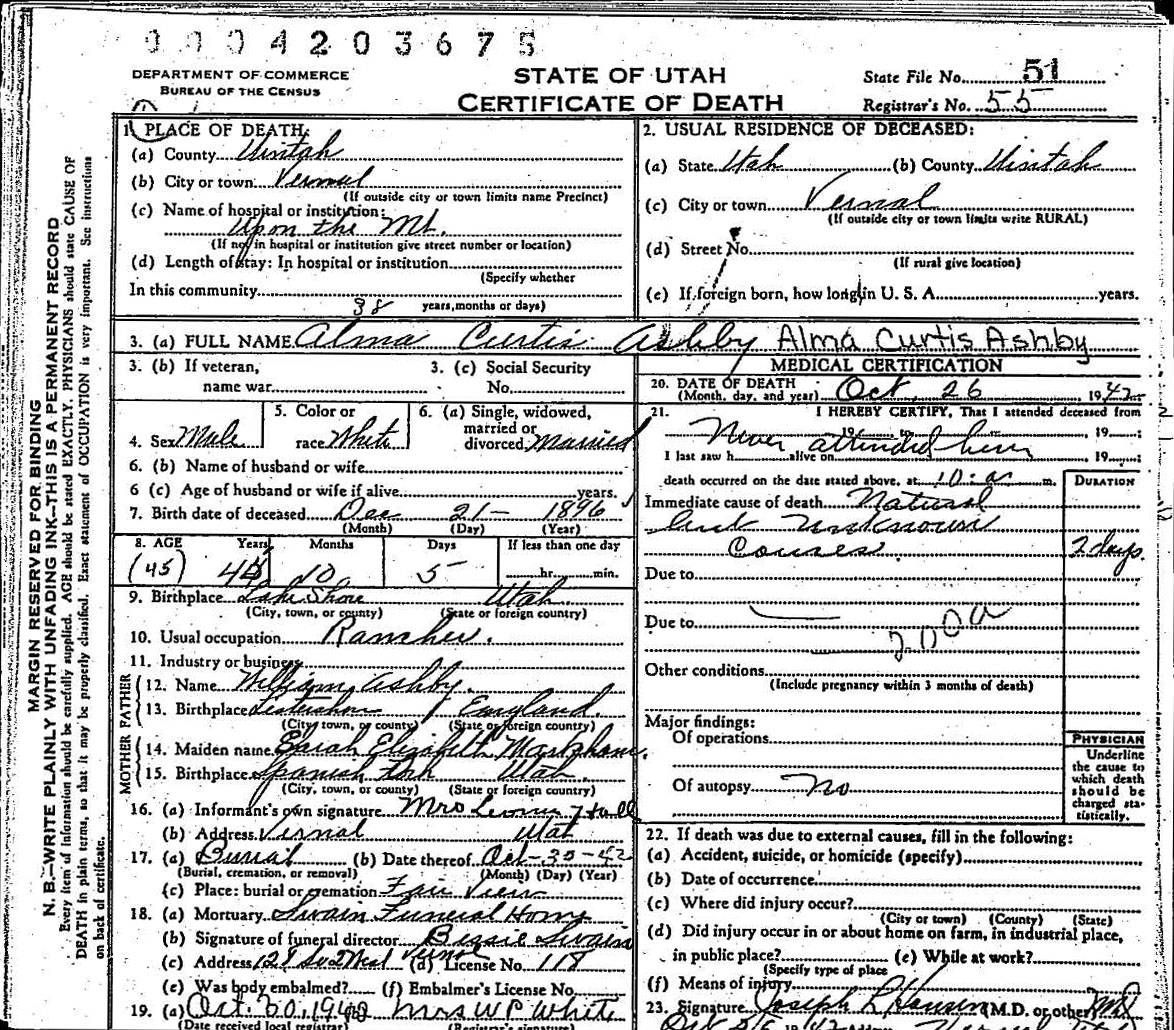 0004203675
DEPARTMENT OF COMMERCE
BUREAU OF THE CENSUS
STATE OF UTAH
CERTIFICATE OF DEATH
State File No. 51
Registrar's No. 55
MARGIN RESERVED FOR BINDING
N. B.—WRITE PLAINLY WITH UNFADING INK—THIS IS A PERMANENT RECORD
Every item of information should be carefully supplied. AGE should be stated EXACTLY. PHYSICIANS should state CAUSE OF
DEATH in plain terms, so that it may be properly classified. Exact statement of OCCUPATION is very important. See instructions
on back of certificate.
1. PLACE OF DEATH:
(a) County Uintah
(b) City or town Vernal
(If outside city or town limits name Precinct)
(c) Name of hospital or institution:
Upon the Mt.
(If not in hospital or institution give street number or location)
(d) Length of stay: In hospital or institution
(Specify whether
In this community 38 years, months or days)
2. USUAL RESIDENCE OF DECEASED:
(a) State Utah (b) County Uintah
(c) City or town Vernal
(If outside city or town limits write RURAL)
(d) Street No.
(If rural give location)
(e) If foreign born, how long in U. S. A. years.
3. (a) FULL NAME Alma Curtis Ashby Alma Curtis Ashby
3. (b) If veteran,
name war
3. (c) Social Security
No.
4. Sex Male
5. Color or
race White
6. (a) Single, widowed,
married or
divorced Married
6. (b) Name of husband or wife
6 (c) Age of husband or wife if alive years.
7. Birth date of deceased Dec 21- 1896
(Month) (Day) (Year)
8. AGE Years Months Days If less than one day
(45) 10 5 hr. min.
9. Birthplace Lake Shore Utah
(City, town, or county) (State or foreign country)
10. Usual occupation Rancher.
11. Industry or business
FATHER
12. Name William Ashby.
13. Birthplace England.
(City, town, or county) (State or foreign country)
MOTHER
14. Maiden name Sarah Elizabeth Markham.
15. Birthplace Spanish Fork Utah.
(City, town, or county) (State or foreign country)
16. (a) Informant's own signature Mrs Hall
(b) Address Vernal Utah
17. (a) Burial (b) Date thereof Oct-30-42
(Burial, cremation, or removal) (Month) (Day) (Year)
(c) Place: burial or cremation Fair View
18. (a) Mortuary Swain Funeral Home
(b) Signature of funeral director Bessie Swain
(c) Address 128 So 2 West Vernal (d) License No. 118
(e) Was body embalmed? (f) Embalmer's License No.
19. (a) Oct. 30, 1942 Mrs W P White
(Date received local registrar) (Registrar's signature)
MEDICAL CERTIFICATION
20. DATE OF DEATH
(Month, day, and year) Oct. 26 1942
21. I HEREBY CERTIFY, That I attended deceased from
19 to 19
Never attended him
I last saw h alive on 19
death occurred on the date stated above, at 10:a m.
DURATION
Immediate cause of death Natural
but unknown
Causes. 2 days.
Due to
Due to
200a
Other conditions
(Include pregnancy within 3 months of death)
Major findings:
Of operations
Of autopsy No
PHYSICIAN
Underline
the cause to
which death
should be
charged sta-
tistically.
22. If death was due to external causes, fill in the following:
(a) Accident, suicide, or homicide (specify)
(b) Date of occurrence
(c) Where did injury occur?
(City or town) (County) (State)
(d) Did injury occur in or about home on farm, in industrial place,
in public place? (e) While at work?
(Specify type of place
(f) Means of injury
23. Signature Joseph R Hansen (M.D. or other) MD